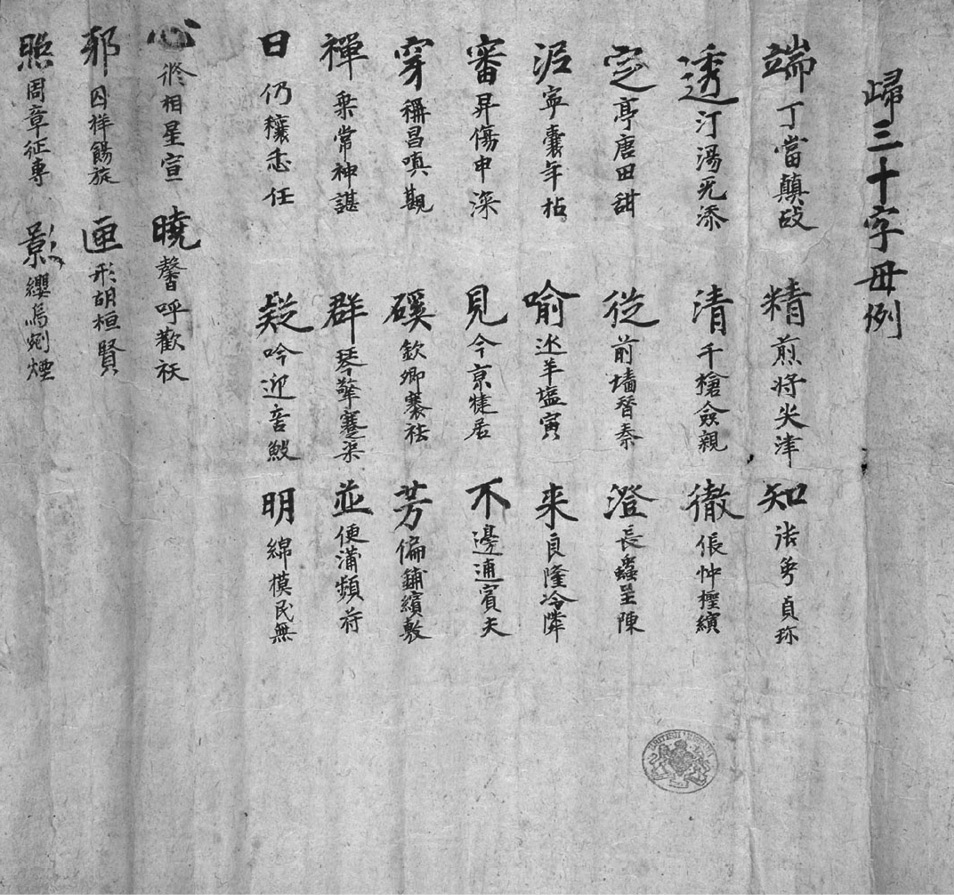 歸三十字母例
端丁當顛敁 精煎將尖津 知張衷貞珎
透汀湯天添 清千槍僉親 徹倀忡檉縝
定亭唐田甜 從前墻朁秦 澄長蟲呈陳
泥寧囊年拈 喻延羊塩寅 来良隆冷隣
審昇傷申深 見今京犍居 不邊逋賓夫
穿稱昌嗔覾 磎欽卿褰祛 芳偏鋪繽敷
禪乘常神諶 群琴擎蹇渠 並便蒲頻符
日仍穰忎任 疑吟迎言 明綿模民無
心修相星宣 曉馨呼歡祅
邪囚祥餳旋 匣形胡桓賢
照周章征專 影纓烏剜煙